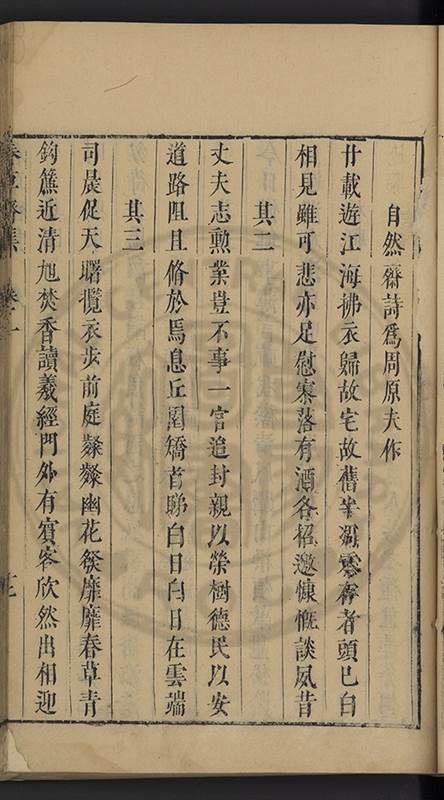 自然齋詩爲周原夫作
廿載遊江海拂衣歸故宅故舊半凋零存者頭已白
相見雖可悲亦足慰寨落有酒各招邀慷慨談夙昔
其二
丈夫志勲業豈不事一官追封親以榮樹德民以安
道路阻且脩於焉息丘園矯首睇白日白日在雲端
其三
司晨促天曙攬衣步前庭粲粲幽花發靡靡春草青
鈎簾近清旭焚香讀羲經門外有賓客欣然出相迎